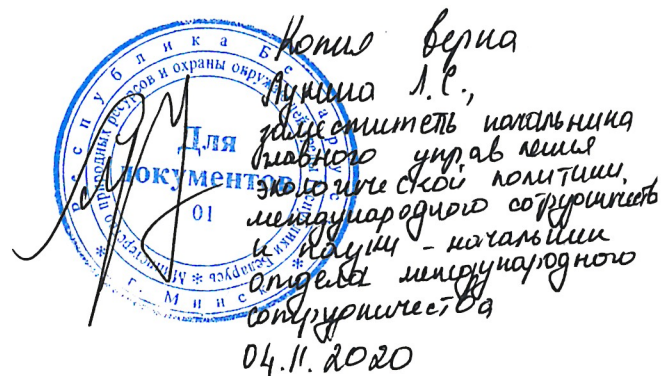 Республика Беларусь
Министерство природных ресурсов и охраны окружающей среды Республики Беларусь
г. Минск
Для
документов
01
Копия верна
Лунина Л.С.,
заместитель начальника
главного управления
экологической политики,
международного сотрудничества
и науки - начальник
отдела международного
сотрудничества
04.11.2020